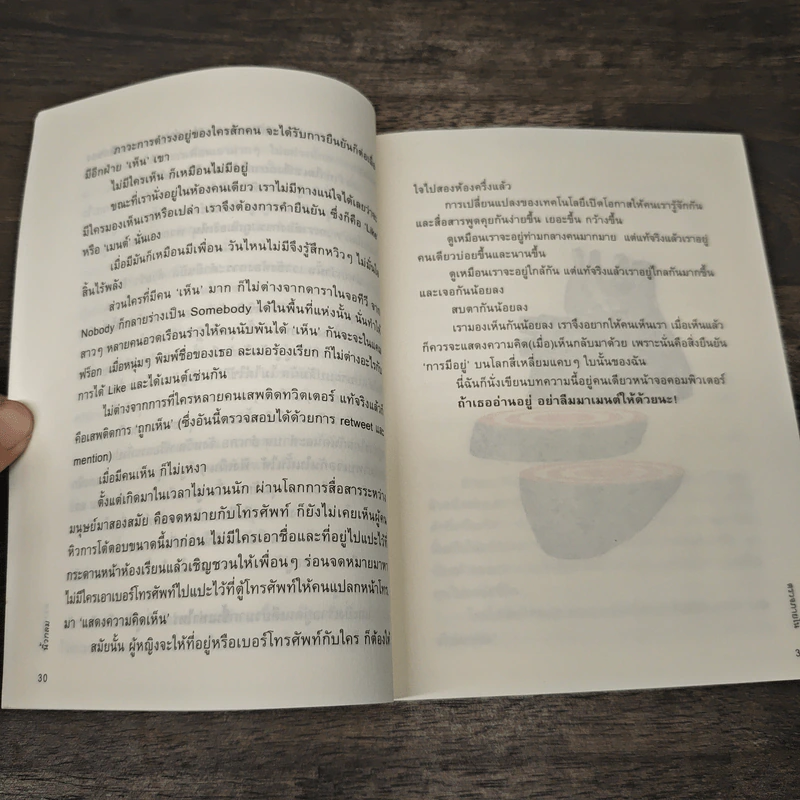 ภาวะการดำรงอยู่ของใครสักคน จะได้รับการยืนยันก็ต่อเมื่อ
มีอีกฝ่าย 'เห็น' เขา
ไม่มีใครเห็น ก็เหมือนไม่มีอยู่
ขณะที่เรานั่งอยู่ในห้องคนเดียว เราไม่มีทางแน่ใจได้เลยว่า
มีใครมองเห็นเราหรือเปล่า เราจึงต้องการคำยืนยัน ซึ่งก็คือ 'Like'
หรือ 'เมนต์' นั่นเอง
เมื่อมีมันก็เหมือนมีเพื่อน วันไหนไม่มีจึงรู้สึกหวิวๆ ไม่มั่นใจ
สิ้นไร้พลัง
ส่วนใครที่มีคน 'เห็น' มาก ก็ไม่ต่างจากดาราในจอทีวี จาก
Nobody ก็กลายร่างเป็น Somebody ได้ในพื้นที่แห่งนั้น นั่นทำให้
สาวๆ หลายคนอวดเรือนร่างให้คนนับพันได้ 'เห็น' กันจะจะในแคม
ฟร็อก เมื่อหนุ่มๆ พิมพ์ชื่อของเธอ ละเมอร้องเรียก ก็ไม่ต่างอะไรกับ
การได้ Like และได้เมนต์เช่นกัน
ไม่ต่างจากการที่ใครหลายคนเสพติดทวิตเตอร์ แท้จริงแล้วก็
คือเสพติดการ 'ถูกเห็น' (ซึ่งอันนี้ตรวจสอบได้ด้วยการ retweet และ
mention)
เมื่อมีคนเห็น ก็ไม่เหงา
ตั้งแต่เกิดมาในเวลาไม่นานนัก ผ่านโลกการสื่อสารระหว่าง
มนุษย์มาสองสมัย คือจดหมายกับโทรศัพท์ ก็ยังไม่เคยเห็นผู้คน
หิวการโต้ตอบขนาดนี้มาก่อน ไม่มีใครเอาชื่อและที่อยู่ไปแปะไว้ที่
กระดานหน้าห้องเรียนแล้วเชิญชวนให้เพื่อนๆ ร่อนจดหมายมาหา
ไม่มีใครเอาเบอร์โทรศัพท์ไปแปะไว้ที่ตู้โทรศัพท์ให้คนแปลกหน้าโทร
มา 'แสดงความคิดเห็น'
สมัยนั้น ผู้หญิงจะให้ที่อยู่หรือเบอร์โทรศัพท์กับใคร ก็ต้องให้
นิ้วกลม
30
ใจไปสองห้องครึ่งแล้ว
การเปลี่ยนแปลงของเทคโนโลยีเปิดโอกาสให้คนเรารู้จักกัน
และสื่อสารพูดคุยกันง่ายขึ้น เยอะขึ้น กว้างขึ้น
ดูเหมือนเราจะอยู่ท่ามกลางคนมากมาย แต่แท้จริงแล้วเราอยู่
คนเดียวบ่อยขึ้นและนานขึ้น
ดูเหมือนเราจะอยู่ใกล้กัน แต่แท้จริงแล้วเราอยู่ไกลกันมากขึ้น
และเจอกันน้อยลง
สบตากันน้อยลง
เรามองเห็นกันน้อยลง เราจึงอยากให้คนเห็นเรา เมื่อเห็นแล้ว
ก็ควรจะแสดงความคิด(เมื่อ)เห็นกลับมาด้วย เพราะนั่นคือสิ่งยืนยัน
'การมีอยู่' บนโลกสี่เหลี่ยมแคบๆ ใบนั้นของฉัน
นี่ฉันก็นั่งเขียนบทความนี้อยู่คนเดียวหน้าจอคอมพิวเตอร์
ถ้าเธออ่านอยู่ อย่าลืมมาเมนต์ให้ด้วยนะ!
ตรวจภายใน